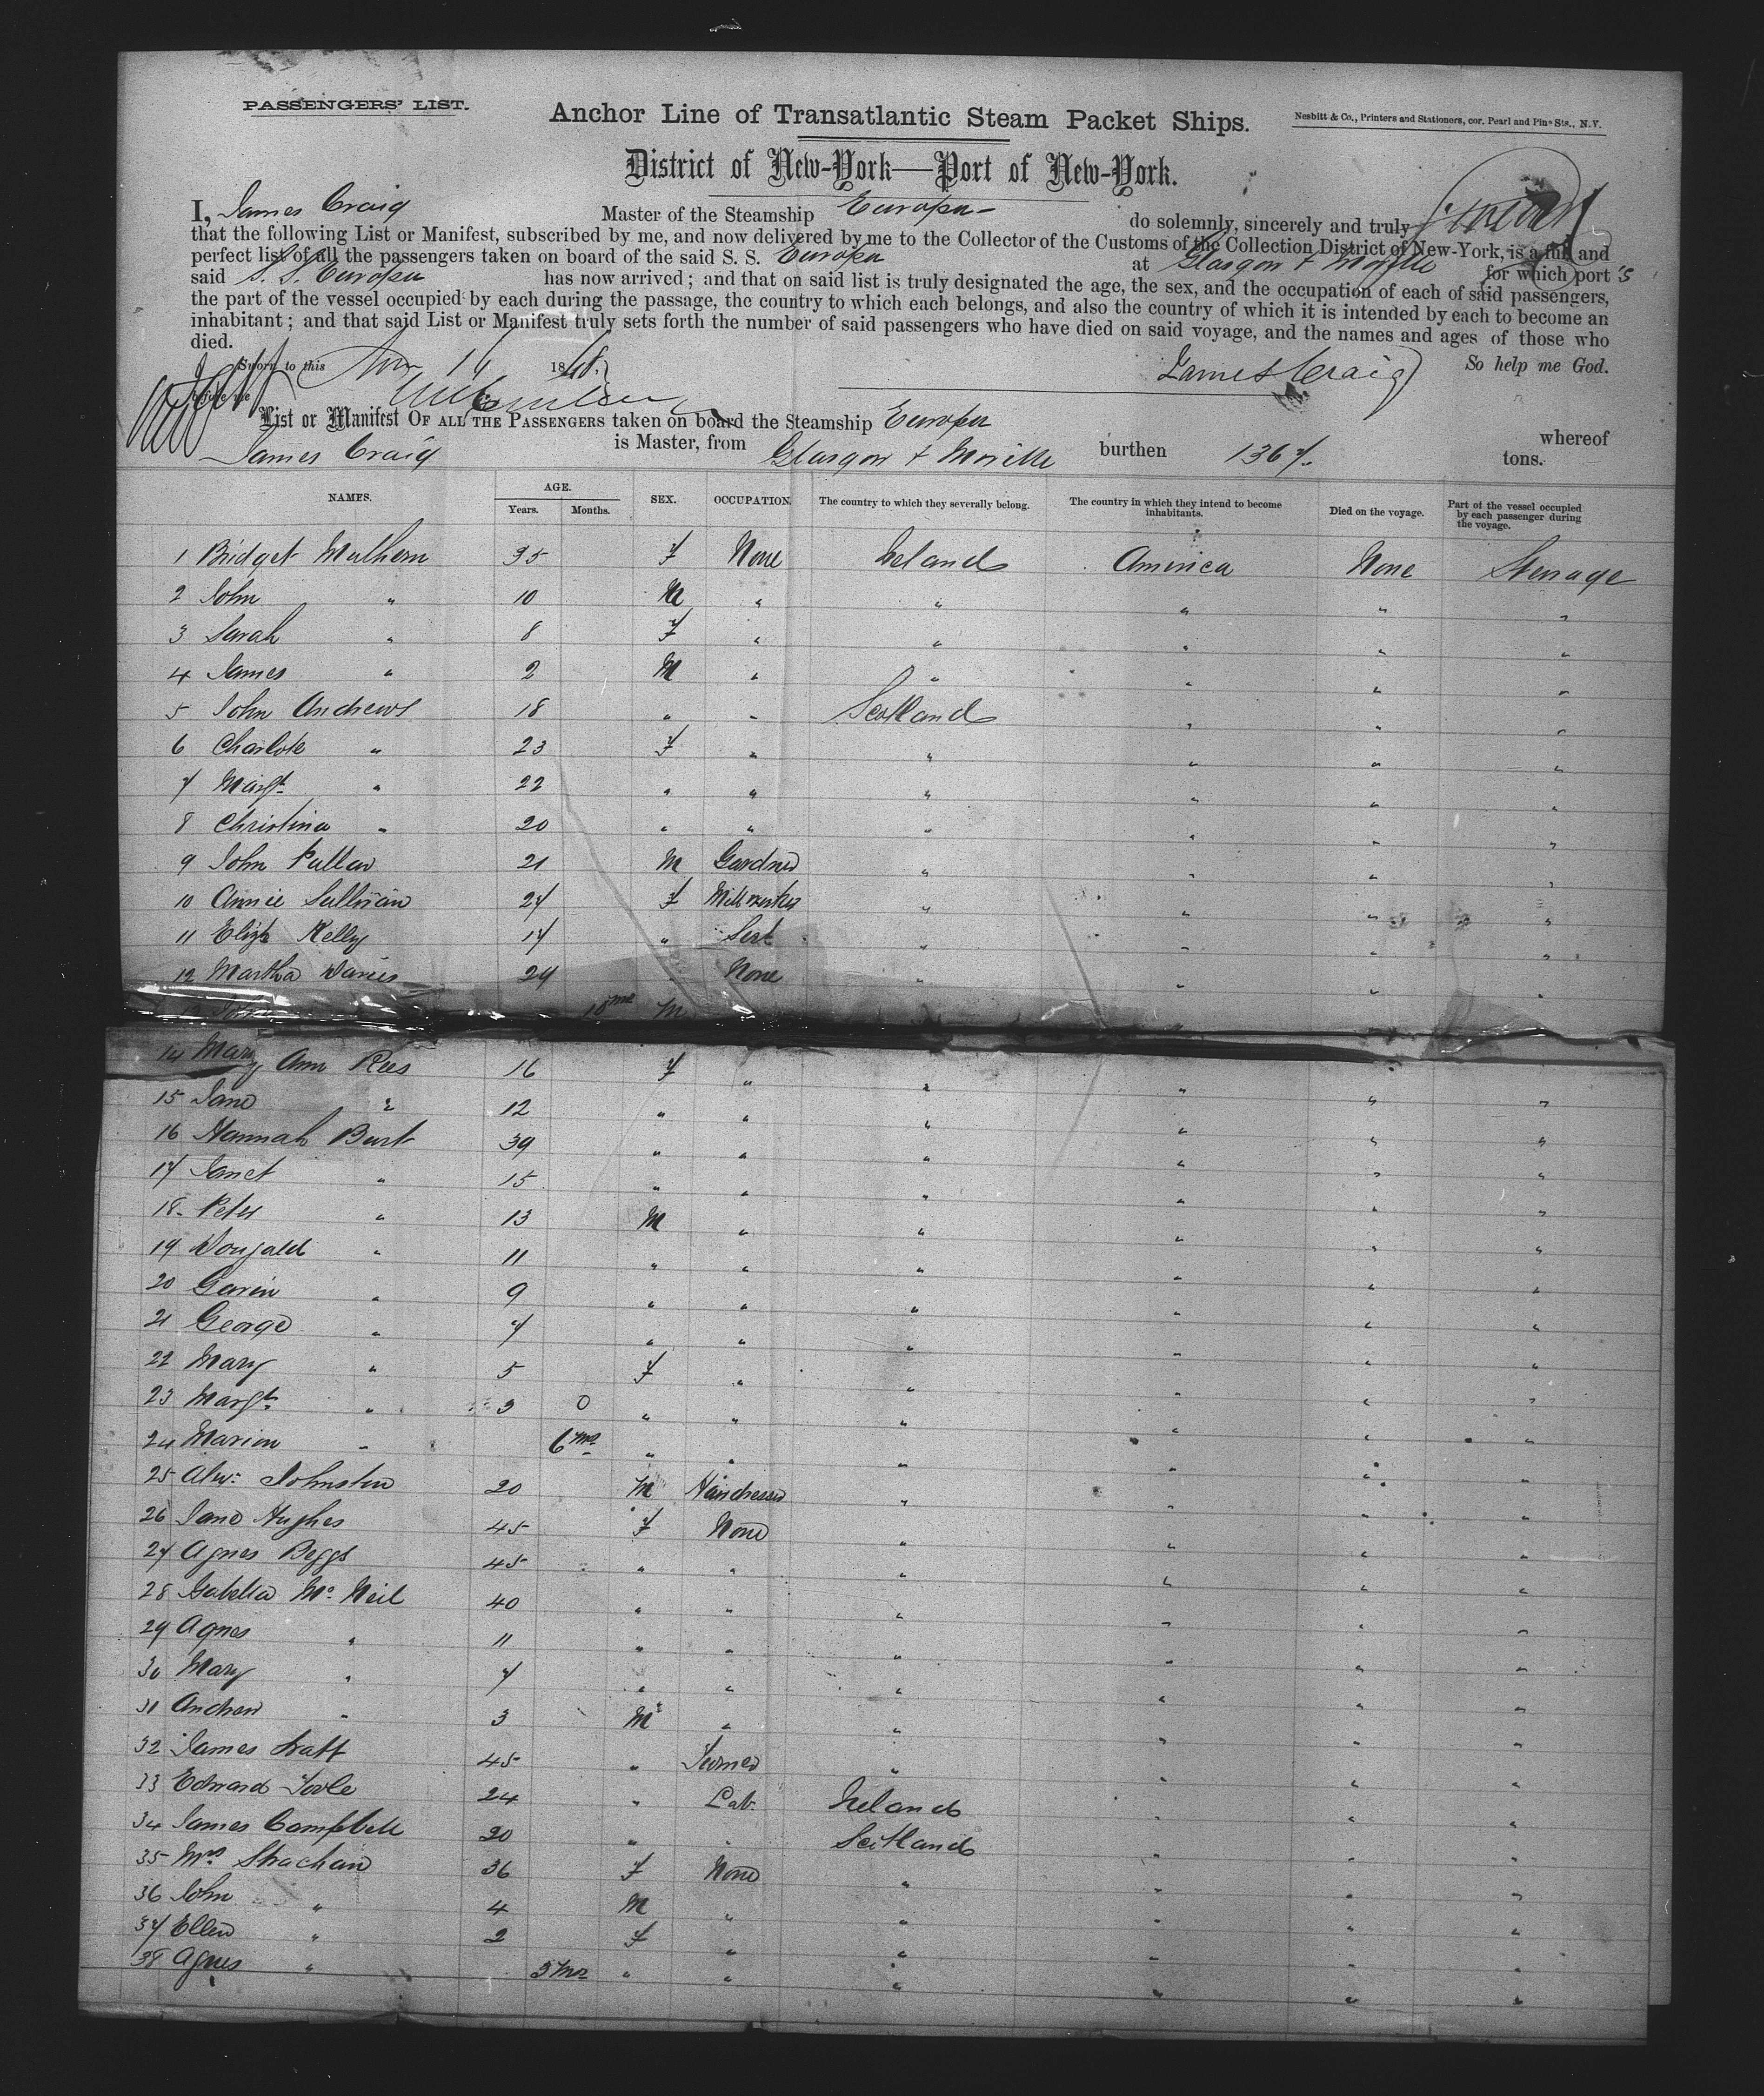 PASSENGERS' LIST.
Anchor Line of Transatlantic Steam Packet Ships.
Nesbitt & Co., Printers and Stationers, cor. Pearl and Pine Sts., N.Y.
District of New-York—Port of New-York.
I, James Craig Master of the Steamship Europa do solemnly, sincerely and truly swear
that the following List or Manifest, subscribed by me, and now delivered by me to the Collector of the Customs of the Collection District of New-York, is a full and
perfect list of all the passengers taken on board of the said S. S. Europa at Glasgow + Moville for which port's
said S. S. Europa has now arrived; and that on said list is truly designated the age, the sex, and the occupation of each of said passengers,
the part of the vessel occupied by each during the passage, the country to which each belongs, and also the country of which it is intended by each to become an
inhabitant; and that said List or Manifest truly sets forth the number of said passengers who have died on said voyage, and the names and ages of those who
died.
Sworn to this Nov 18 So help me God.
before me James Craig
List or Manifest OF ALL THE PASSENGERS taken on board the Steamship Europa whereof
James Craig is Master, from Glasgow + Moville burthen 1367 tons.
NAMES. AGE. Years. Months. SEX. OCCUPATION. The country to which they severally belong. The country in which they intend to become inhabitants. Died on the voyage. Part of the vessel occupied by each passenger during the voyage.
1 Bridget Mulhern 35 F None Ireland America None Steerage
2 John " 10 M " " " " "
3 Sarah " 8 F " " " " "
4 James " 2 M " " " " "
5 John Andrews 18 " " Scotland " " "
6 Charlote " 23 F " " " " "
7 Margt " 22 " " " " " "
8 Christina " 20 " " " " " "
9 John 21 M Gardner " " " "
10 Annie Sullivan 24 F Millworker " " " "
11 Eliza Kelly 17 " Sert " " " "
12 Martha Davies 24 None " " " "
John 18 mo M
14 Mary Ann Rees 16 F " " " " "
15 Jane " 12 " " " " " "
16 Hannah Burt 39 " " " " " "
17 Janet " 15 " " " " " "
18 Peter " 13 M " " " " "
19 Dougald " 11 " " " " " "
20 Gavin " 9 " " " " " "
21 George " 7 " " " " " "
22 Mary " 5 F " " " " "
23 Margt " 3 0 " " " " " "
24 Marion " 6 mo " " " " " "
25 Alexr Johnston 20 M Hairdresser " " " "
26 Jane Hughes 45 F None " " " "
27 Agnes Beggs 45 " " " " " "
28 Isabella Mc Neil 40 " " " " " "
29 Agnes " 11 " " " " " "
30 Mary " 7 " " " " " "
31 Andrew " 3 M " " " " "
32 James 45 " " " " "
33 Edward Toole 24 " Lab. Ireland " " "
34 James Campbell 20 " " Scotland " " "
35 Mrs Strachan 36 F None " " " "
36 John " 4 M " " " " "
37 Ellen " 2 F " " " " "
38 Agnes " 3 mos " " " " " "